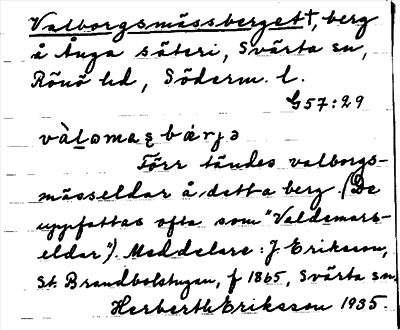 Valborgsmässberget†, berg
å Ånga säteri, Svärta sn,
Rönö hd, Söderm. l.
G57:29
vàlomaʂbǽrjə
Förr tändes valborgs-
mässeldar å detta berg. (De
uppfattas ofta som "Valdemars-
eldar"). Meddelare: J. Eriksson,
St. Brandbolstugan, f 1865, Svärta sn.
Herbert Eriksson 1935.